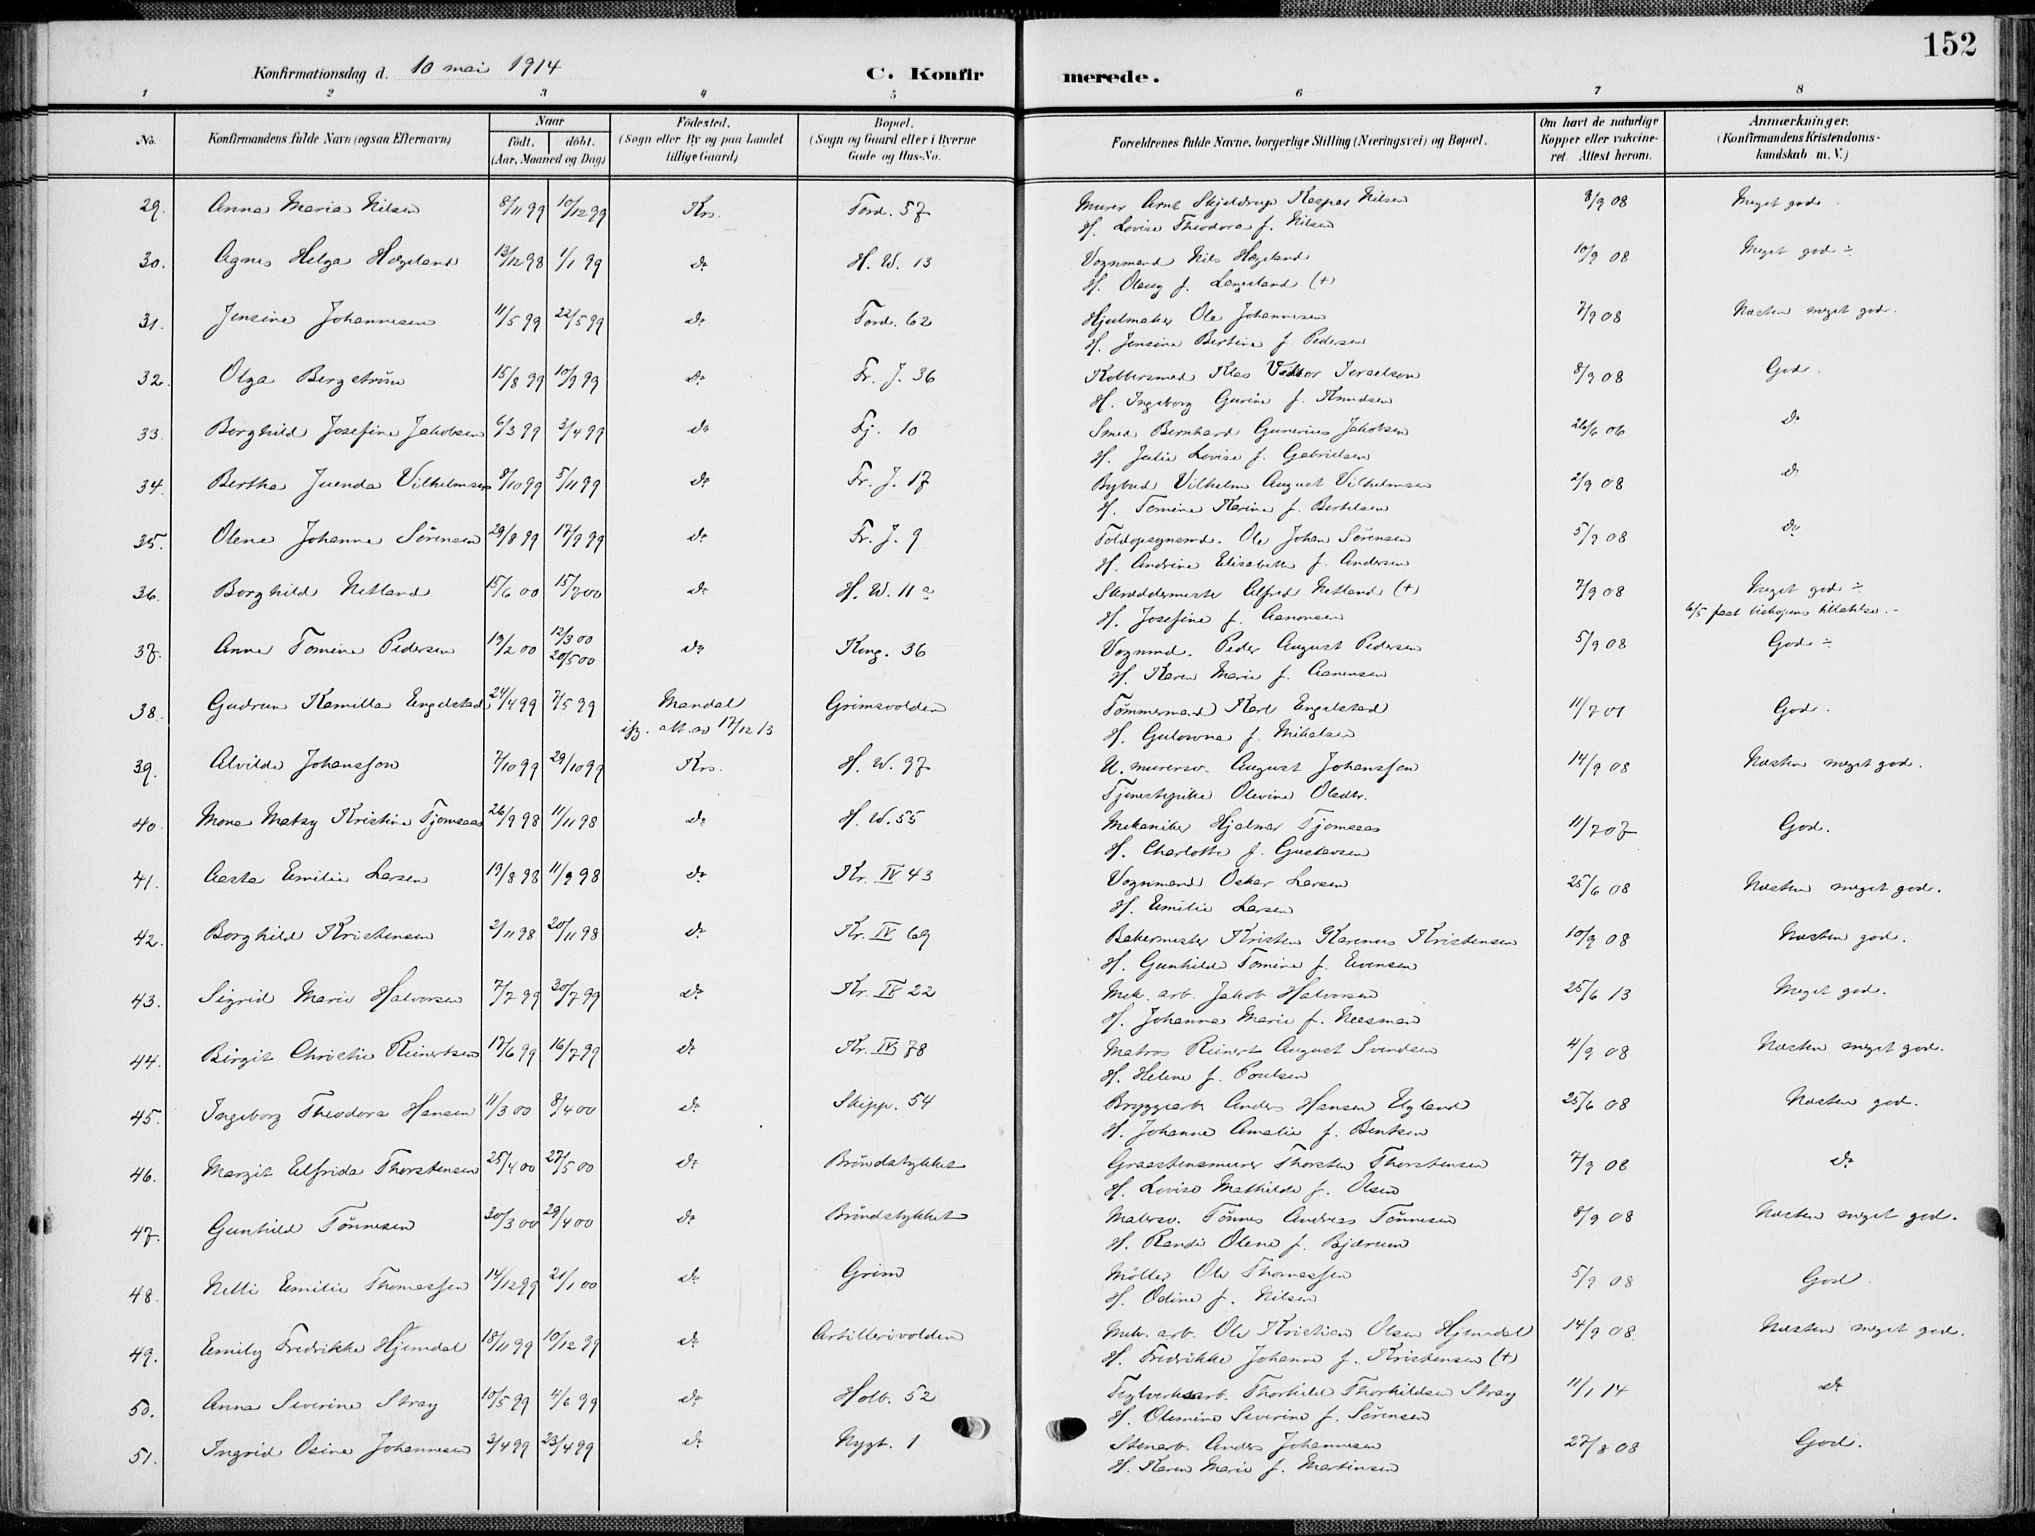 152
Konfirmationsdag d. 10 mai 1914 C. Konfirmerede.
1 2 3 4 5 6 7 8
No. Konfirmandens fulde Navn (ogsaa Efternavn) Naar födt. döbt. (Aar, Maaned og Dag) Födested. (Sogn eller By og paa Landet tillige Gaard) Bopæl. (Sogn og Gaard eller i Byerne Gade og Hus-No. Forældrenes fulde Navne, borgerlige Stilling (Næringsvei) og Bopæl. Om havt de naturlige Kopper eller vakcineret. Attest herom. Anmærkninger. (Konfirmandens Kristendomskundskab m. V.)
29. Anna Maria Nilsen 8/11 99 10/12 99 Krs. Tord. 57 Murer Arnt Skjeldrup Kasper Nilsen 8/9 08 Meget god.
H. Lovise Theodora f. Nilsen
30. Agnes Helga Hægeland 13/12 98 1/1 99 do H. W. 13 Vognmand Nils Hægeland 10/9 08 Meget god ÷
H. Olaug f. Langeland (+)
31. Jensine Johannesen 11/5 99 22/5 99 do Tord. 62 Hjulmaker Ole Johannesen 7/9 08 Næsten meget god.
H. Jensine Bertine f. Pedersen
32. Olga Bergström 15/8 99 10/9 99 do Fr. J. 36 Kobbersmed Klas Viktor Israelson 8/9 08 God.
H. Ingeborg Gurine f. Knudsen
33. Borghild Josefine Jakobsen 6/3 99 3/4 99 do Fj. 10 Smed Bernhard Gunerius Jakobsen 26/6 06 do
H. Julie Lovise f. Gabrielsen
34. Bertha Juenda Vilhelmsen 8/10 99 5/11 99 do Fr. J. 17 Bybud Vilhelm August Vilhelmsen 2/9 08 do
H. Tomine Karine f. Bertelsen
35. Olene Johanne Sörensen 29/8 99 17/9 99 do Fr. J. 9 Toldopsynsmd. Ole Johan Sörensen 5/9 08 do
H. Andrine Elisabeth f. Andersen
36. Borghild Netland 15/6 00 15/7 00 do H. W. 11a Skreddermester Alfred Netland (+) 7/9 08 Meget god ÷
H. Josefine f. Aanonsen 6/5 faat biskopens tilladelse.
37. Anne Tomine Pedersen 19/2 00 12/3 00 20/5 00 do Kong. 36 Vognmd. Peder August Pedersen 5/9 08 God ÷
H. Karen Marie f. Aanensen
38. Gudrun Kamilla Engelstad 24/4 99 7/5 99 Mandal Grimsvolden Tömmermand Karl Engelstad 11/7 01 God.
ifg. att. av 17/12 13 H. Gulowna f. Mikalsen
39. Alvilde Johansson 7/10 99 29/10 99 Krs. H. W. 97 U. murersv. August Johansson 14/9 08 Næsten meget god.
Tjenestepike Olevine Olsdtr.
40. Mona Matsy Kristine Tjomsaas 26/9 98 11/11 98 do H. W. 55 Mekaniker Hjalmar Tjomsaas 11/7 07 God.
H. Charlotte f. Gustavsen
41. Aasta Emilie Larsen 19/8 98 11/9 98 do Kr. IV 43 Vognmand Oskar Larsen 25/6 08 Næsten meget god.
H. Emilie Larsen
42. Borghild Kristensen 2/11 98 20/11 98 do Kr. IV 69 Bakermester Kristen Karenus Kristensen 10/9 08 Næsten god.
H. Gunhilde Tomine f. Evensen
43. Sigrid Marie Halvorsen 7/7 99 30/7 99 do Kr. IV 22 Mek. arb. Jakob Halvorsen 25/6 13 Meget god.
H. Johanna Marie f. Neesman
44. Birgit Christie Reinertsen 17/6 99 16/7 99 do Kr. IV 78 Matros Reinert August Svendsen 4/9 08 Næsten meget god.
H. Helene f. Poulsen
45. Ingeborg Theodora Hansen 11/3 00 8/4 00 do Skipp. 54 Bryggearb. Anders Hansen Elgland 25/6 08 Næsten god.
H. Johanne Amalie f. Bentsen
46. Margit Elfrida Thorstensen 25/4 00 27/5 00 do Bröndstykket Graastensmurer Thorsten Thorstensen 7/9 08 do
H. Lovise Mathilde f. Olsen
47. Gunhild Tönnesen 30/3 00 29/4 00 do Bröndstykket Malersv. Tönnes Andreas Tönnesen 8/9 08 Næsten meget god.
H. Randi Olene f. Bjærum
48. Nelli Emilie Thomassen 14/12 99 21/1 00 do Grim Möller Ole Thomassen 5/9 08 God
H. Odine f. Nilsen
49. Emily Fredrikke Hjemdal 18/11 99 10/12 99 do Artillerivolden Mek. arb. Ole Kristian Olsen Hjemdal 14/9 08 Næsten meget god.
H. Fredrikke Johanne f. Kristensen (+)
50. Anna Severine Stray 10/5 99 4/6 99 do Holb. 52 Teglverksarb. Thorkild Thorkildsen Stray 11/1 14 do
H. Olemine Severine f. Sörensen
51. Ingrid Osine Johannesen 3/4 99 23/4 99 do Nygt. 1 Stenarb. Anders Johannesen 27/8 08 God.
H. Karen Marie f. Martinsen